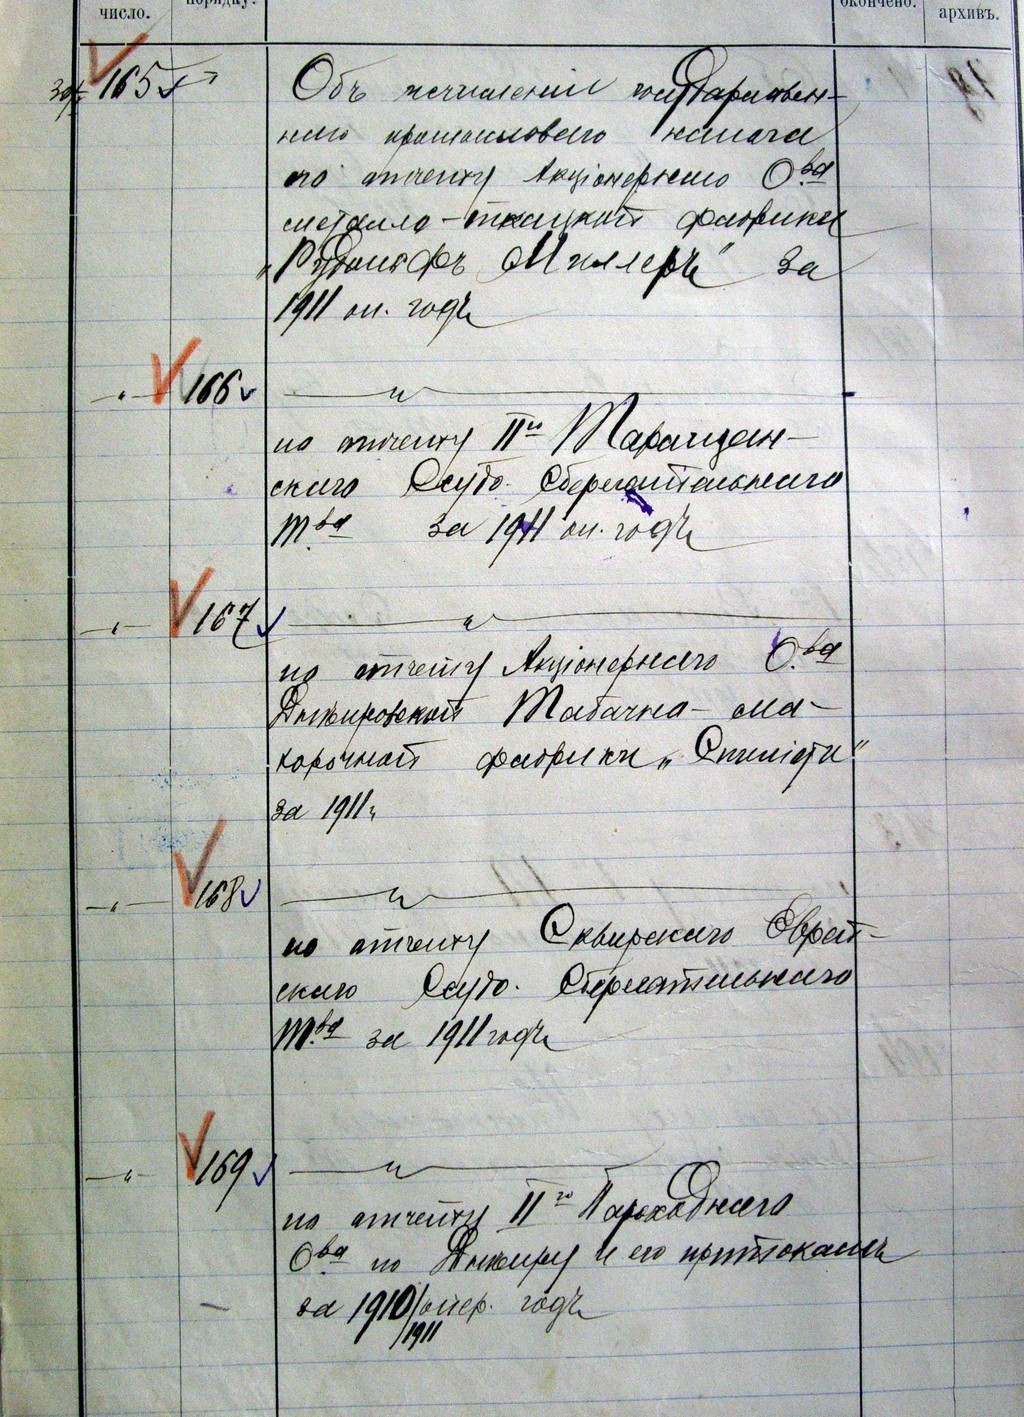 число. порядку. окончено. архивъ.
165 Объ исчисленіи государствен-
наго промысловаго налога
по отчету Акціонернаго О-ва
металло-ткацкой фабрики
„Рудольфъ Миллеръ" за
1911 оп. годъ
" 166 — " —
по отчету IIго Таращан-
скаго Ссудо. Сберегательнаго
Т-ва за 1911 оп. годъ
" 167 — " —
по отчету Акціонернаго О-ва
Днѣпровской Табачно-ма-
хорочной фабрики „
за 1911 г.
" 168 — " —
по отчету Сквирскаго Еврей-
скаго Ссудо. Сберегательнаго
Т-ва за 1911 годъ
" 169 — " —
по отчету IIго Пароходнаго
О-ва по Днѣпру и его притокамъ
за 1910/1911 опер. годъ